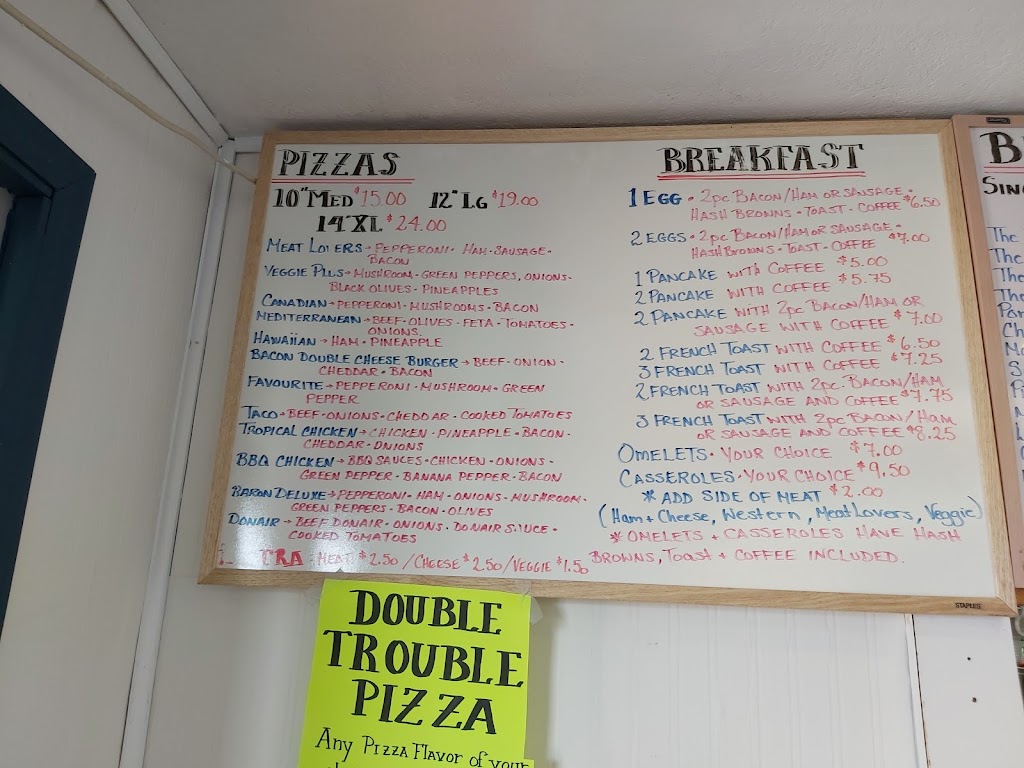 PIZZAS
10" MED $15.00 12" LG $19.00
14" XL $24.00
MEAT LOVERS → PEPPERONI · HAM · SAUSAGE ·
BACON
VEGGIE PLUS → MUSHROOM · GREEN PEPPERS, ONIONS ·
BLACK OLIVES · PINEAPPLES
CANADIAN → PEPPERONI · MUSHROOMS · BACON
MEDITERRANEAN → BEEF · OLIVES · FETA · TOMATOES ·
ONIONS.
HAWAIIAN → HAM · PINEAPPLE
BACON DOUBLE CHEESE BURGER → BEEF · ONION ·
CHEDDAR · BACON
FAVOURITE → PEPPERONI · MUSHROOM · GREEN
PEPPER
TACO → BEEF · ONIONS · CHEDDAR · COOKED TOMATOES
TROPICAL CHICKEN → CHICKEN · PINEAPPLE · BACON ·
CHEDDAR · ONIONS
BBQ CHICKEN → BBQ SAUCES · CHICKEN · ONIONS ·
GREEN PEPPER · BANANA PEPPER · BACON
BARON DELUXE → PEPPERONI · HAM · ONIONS · MUSHROOM ·
GREEN PEPPERS · BACON · OLIVES
DONAIR → BEEF DONAIR · ONIONS · DONAIR SAUCE ·
COOKED TOMATOES
TRA : MEAT $2.50 / CHEESE $2.50 / VEGGIE $1.50
BREAKFAST
1 EGG · 2pc BACON/HAM OR SAUSAGE ·
HASH BROWNS · TOAST · COFFEE $6.50
2 EGGS · 2pc BACON/HAM OR SAUSAGE ·
HASH BROWNS · TOAST · COFFEE $7.00
1 PANCAKE WITH COFFEE $5.00
2 PANCAKE WITH COFFEE $5.75
2 PANCAKE WITH 2pc BACON/HAM OR
SAUSAGE WITH COFFEE $7.00
2 FRENCH TOAST WITH COFFEE $6.50
3 FRENCH TOAST WITH COFFEE $7.25
2 FRENCH TOAST WITH 2pc. BACON/HAM
OR SAUSAGE AND COFFEE $7.75
3 FRENCH TOAST WITH 2pc BACON/HAM
OR SAUSAGE AND COFFEE $8.25
OMELETS · YOUR CHOICE $7.00
CASSEROLES · YOUR CHOICE $9.50
* ADD SIDE OF MEAT $2.00
(Ham + Cheese, Western, Meat Lovers, Veggie)
* OMELETS + CASSEROLES HAVE HASH
BROWNS, TOAST + COFFEE INCLUDED.
STAPLES
DOUBLE
TROUBLE
PIZZA
Any PIZZA FLAVOR of your
B
SING
The
The
The
The